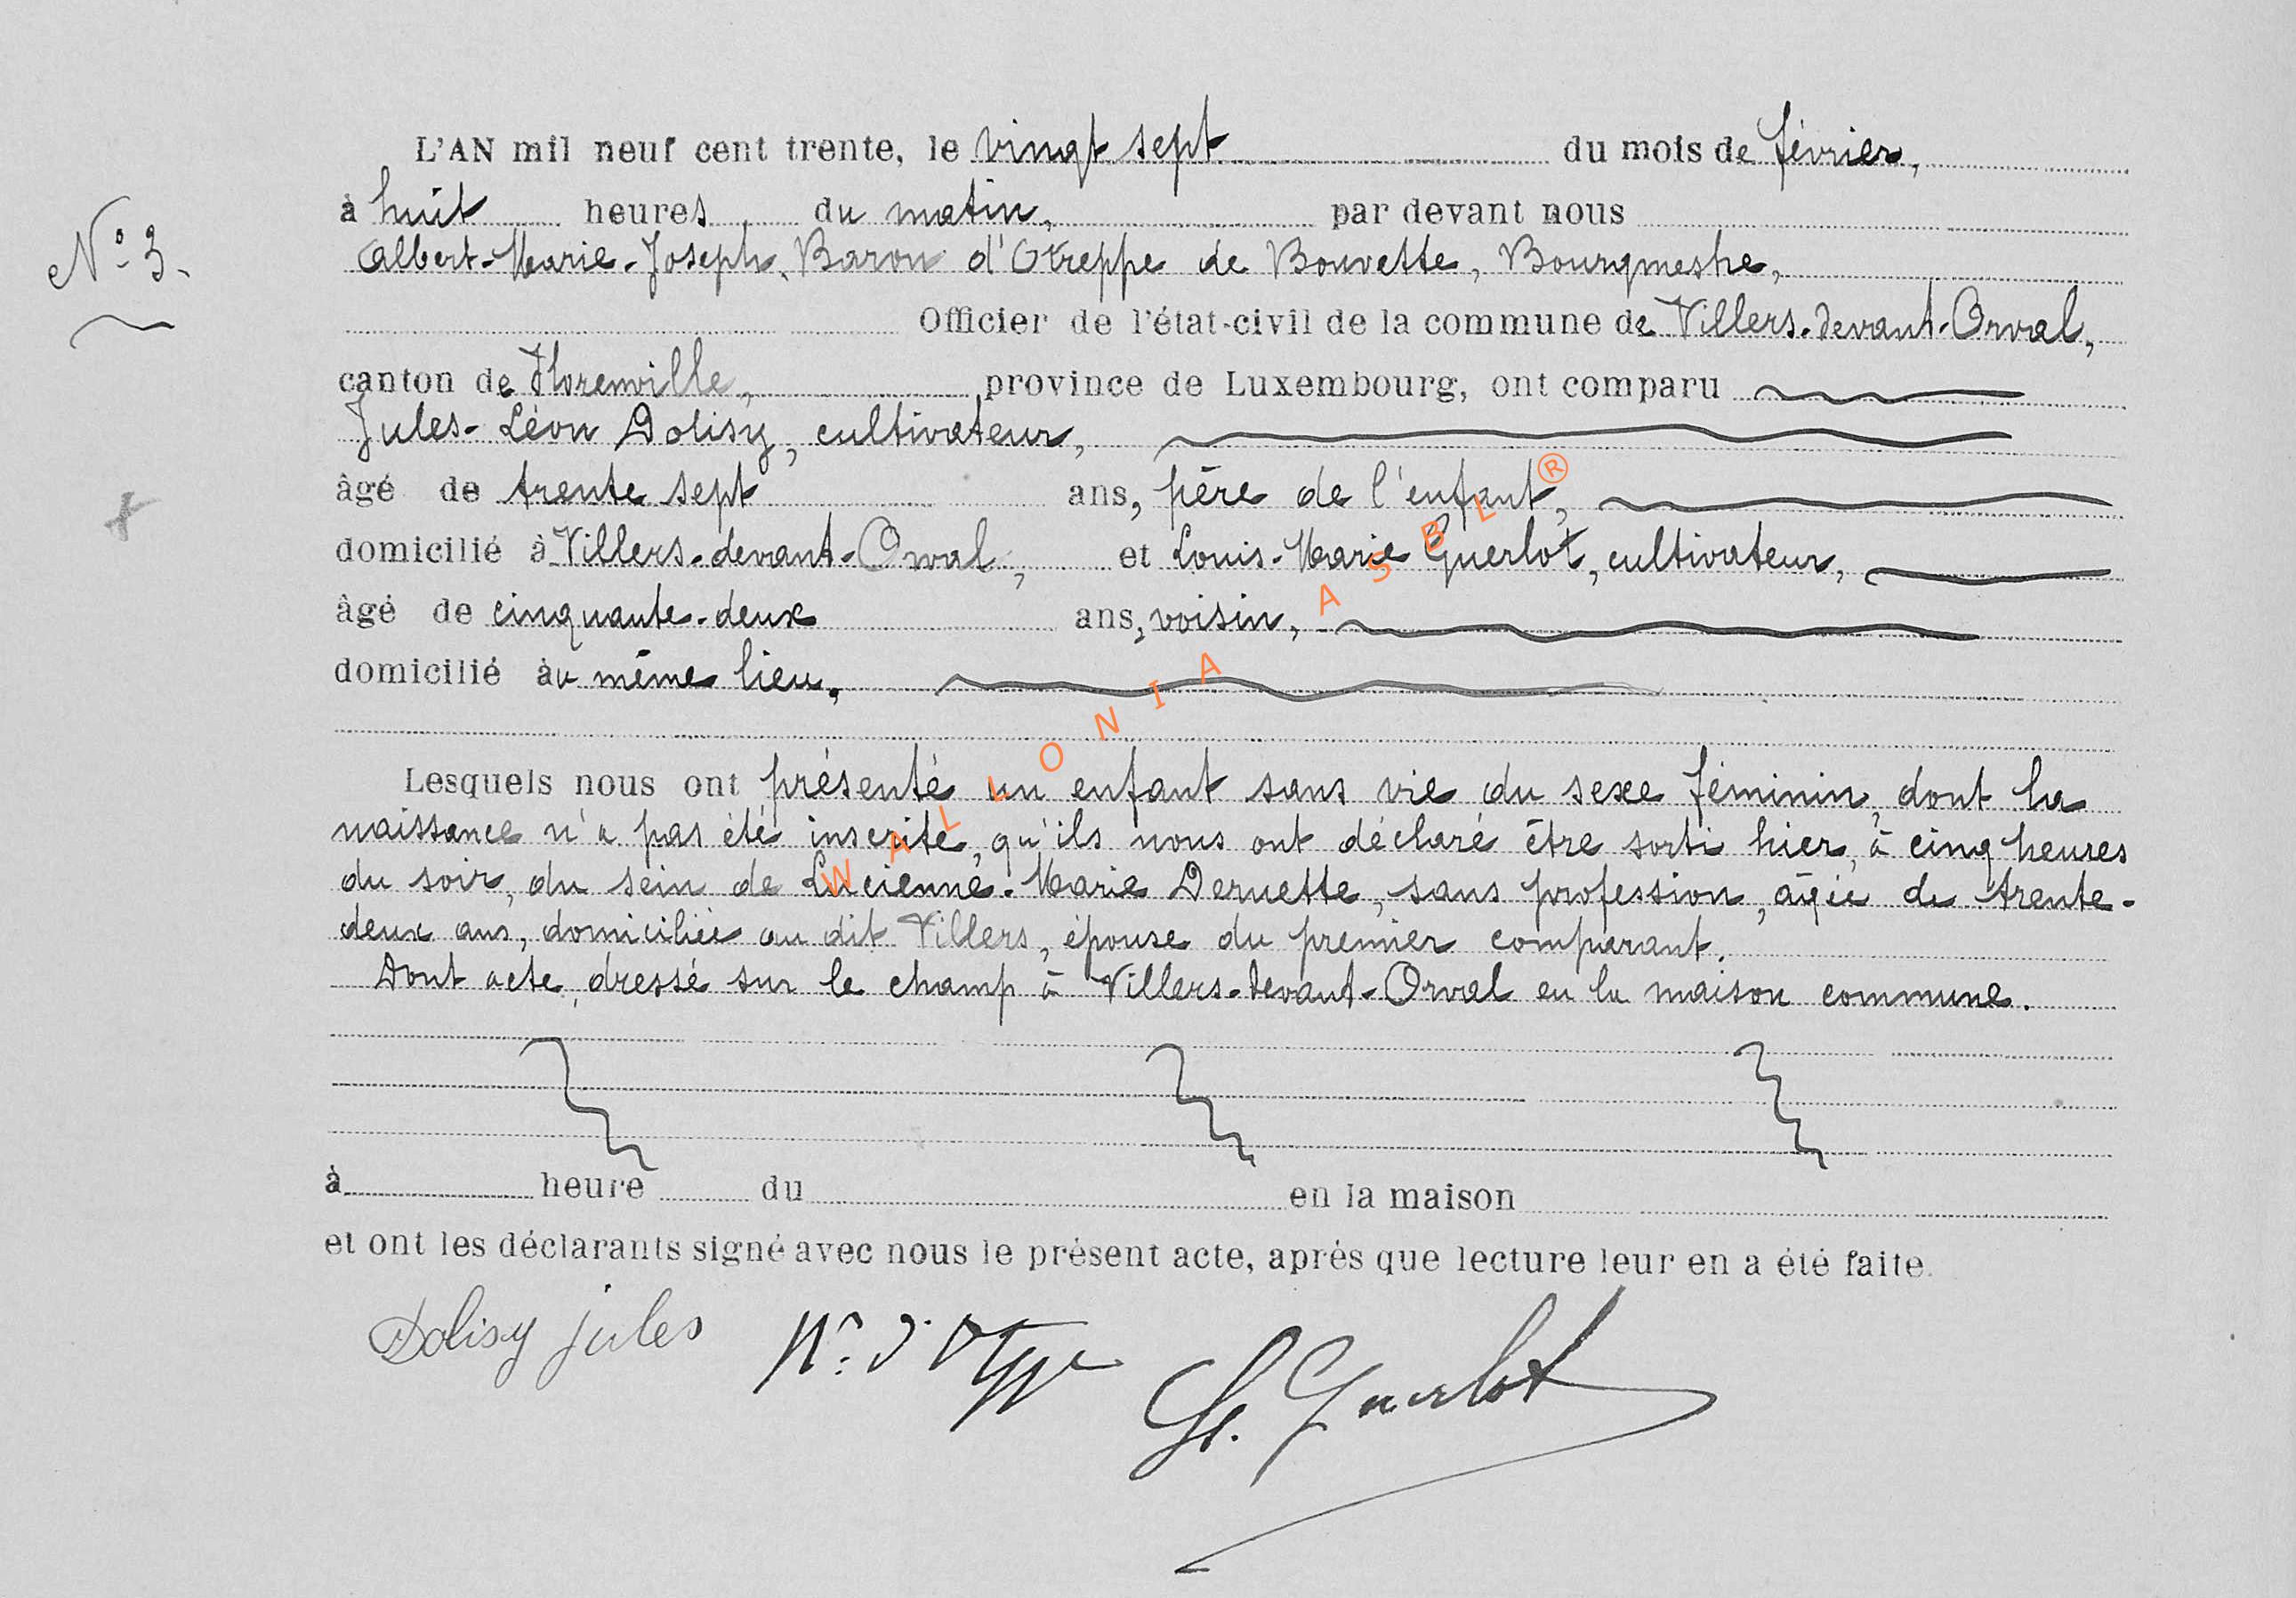 L'AN mil neuf cent trente, le vingt sept du mois de février,
à huit heures du matin, par devant nous
N° 3.
Albert-Marie-Joseph, Baron d'Otreppe de Bouvette, Bourgmestre,
Officier de l'état-civil de la commune de Villers-devant-Orval,
canton de Florenville, province de Luxembourg, ont comparu
Jules-Léon Dolisy, cultivateur,
âgé de trente sept ans, père de l'enfant,
domicilié à Villers-devant-Orval, et Louis-Marie Guerlot, cultivateur,
âgé de cinquante-deux ans, voisin,
domicilié au même lieu.
Lesquels nous ont présenté un enfant sans vie du sexe féminin, dont la
naissance n'a pas été inscrite, qu'ils nous ont déclaré être sorti hier, à cinq heures
du soir, du sein de Lucienne-Marie Dernette, sans profession, âgée de trente-
deux ans, domiciliée au dit Villers, épouse du premier comparant.
Dont acte, dressé sur le champ à Villers-devant-Orval en la maison commune.
à heure du en la maison
et ont les déclarants signé avec nous le présent acte, après que lecture leur en a été faite.
Dolisy jules
d'Otreppe
Guerlot
WALLONIA ASBL ®